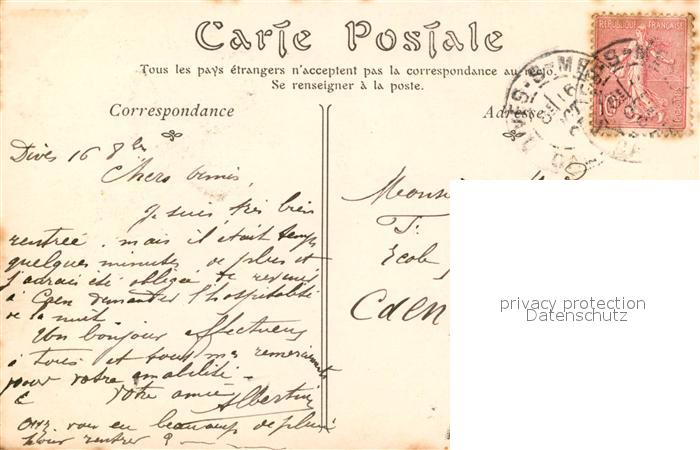 Carte Postale
Tous les pays étrangers n'acceptent pas la correspondance au recto.
Se renseigner à la poste.
Correspondance
Adresse
REPUBLIQUE FRANÇAISE
10
Dives 16 8bre
Chers amis,
Je suis très bien
rentrée, mais il était temps
quelques minutes de plus et
j'aurais été obligée de revenir
à Caen demander l'hospitalité
de la nuit.
Un bonjour affectueux
à tous et tous mes remerciements
pour votre amabilité.
votre amie
Albertine
avez vous eu beaucoup de pluie
pour rentrer ?
Mons
T.
Ecole
Caen
privacy protection
Datenschutz